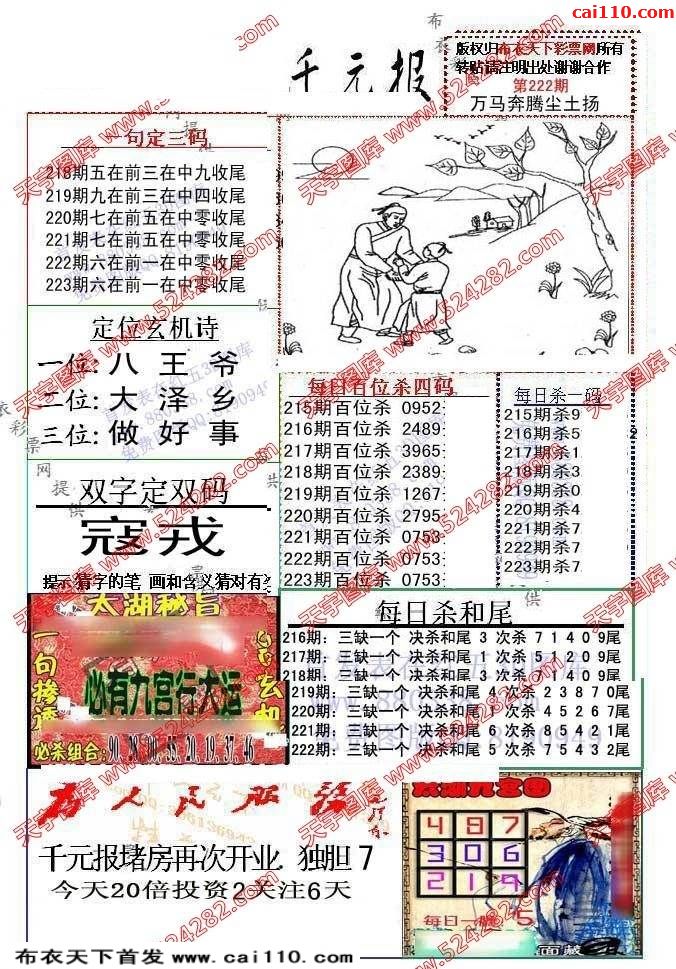 cai110.com
千元报
版权归布衣天下彩票网所有
转贴请注明出处谢谢合作
第222期
万马奔腾尘土扬
一句定三码
218期五在前三在中九收尾
219期九在前三在中四收尾
220期七在前五在中零收尾
221期七在前五在中零收尾
222期六在前一在中零收尾
223期六在前一在中零收尾
定位玄机诗
一位: 八 王 爷
二位: 大 泽 乡
三位: 做 好 事
双字定双码
寇戎
提示猜字的笔 画和含义猜对有
每日百位杀四码
215期百位杀 0952
216期百位杀 2489
217期百位杀 3965
218期百位杀 2389
219期百位杀 1267
220期百位杀 2795
221期百位杀 0753
222期百位杀 0753
223期百位杀 0753
每日杀一码
215期杀9
216期杀5
2
217期杀1
218期杀3
219期杀0
220期杀4
221期杀7
222期杀7
223期杀7
太湖秘旨
必有九宫行大运
必杀组合: 90.28.00.55.20.19.37.46
每日杀和尾
216期: 三缺一个 决杀和尾 3 次杀 7 1 4 0 9尾
217期: 三缺一个 决杀和尾 1 次杀 5 1 2 0 9尾
218期: 三缺一个 决杀和尾 3 次杀 7 1 4 0 9尾
219期: 三缺一个 决杀和尾 4 次杀 2 3 8 7 0尾
220期: 三缺一个 决杀和尾 4 次杀 4 5 2 6 7尾
221期: 三缺一个 决杀和尾 6 次杀 8 5 4 2 1尾
222期: 三缺一个 决杀和尾 6 次杀 7 5 4 3 2尾
为人民服务
千元报堵房再次开业 独胆 7
今天20倍投资2关注6天
太湖九宫图
4 9 7
3 0 6
2 1 9
每日一胆 5
布衣天下首发 www.cai110.com
天宇图库 www.524282.com